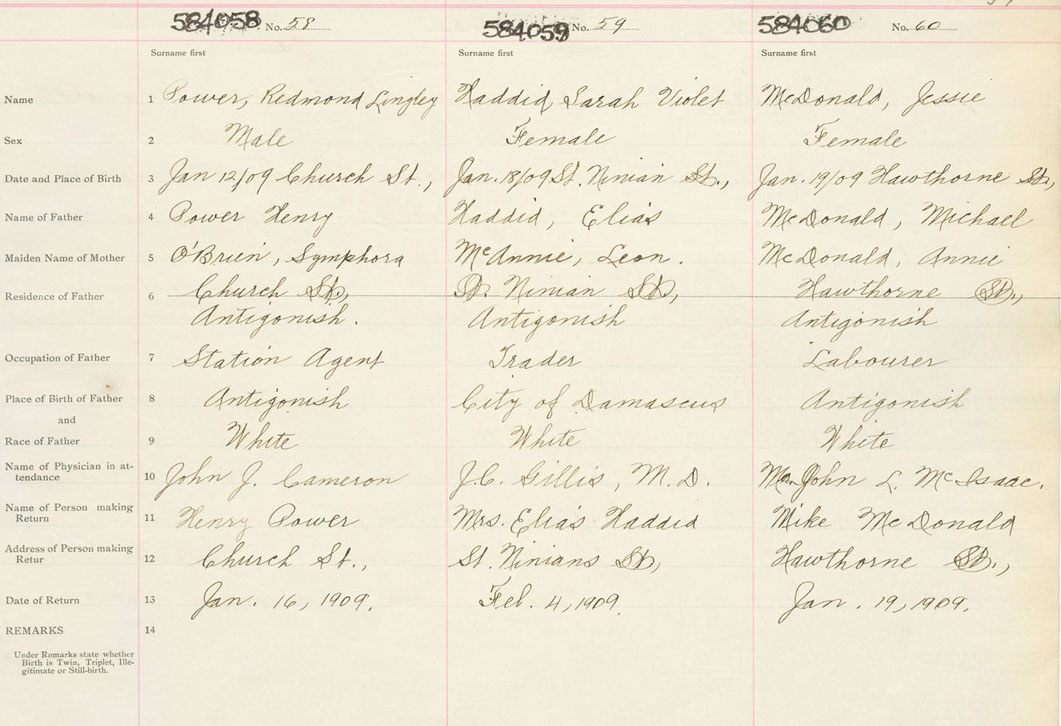 584058 No. 58 584059 No. 59 584060 No. 60
Surname first Surname first Surname first
Name 1 Power, Redmond Lingley Haddid, Sarah Violet McDonald, Jessie
Sex 2 Male Female Female
Date and Place of Birth 3 Jan 12/09 Church St., Jan. 18/09 St. Ninian St., Jan. 19/09 Hawthorne St.,
Name of Father 4 Power Henry Haddid, Elias McDonald, Michael
Maiden Name of Mother 5 O'Brien, Symphora McAnnie, Leon. McDonald, Annie
Residence of Father 6 Church St., St. Ninian St., Hawthorne St.,
Antigonish. Antigonish Antigonish
Occupation of Father 7 Station Agent Trader Labourer
Place of Birth of Father 8 Antigonish City of Damascus Antigonish
and
Race of Father 9 White White White
Name of Physician in at-
tendance 10 John J. Cameron J.C. Gillis, M.D. John L. McIsaac.
Name of Person making
Return 11 Henry Power Mrs. Elias Haddid Mike McDonald
Address of Person making
Retur 12 Church St., St. Ninians St., Hawthorne St.,
Date of Return 13 Jan. 16, 1909. Feb. 4, 1909. Jan. 19, 1909.
REMARKS 14
Under Remarks state whether
Birth is Twin, Triplet, Ille-
gitimate or Still-birth.